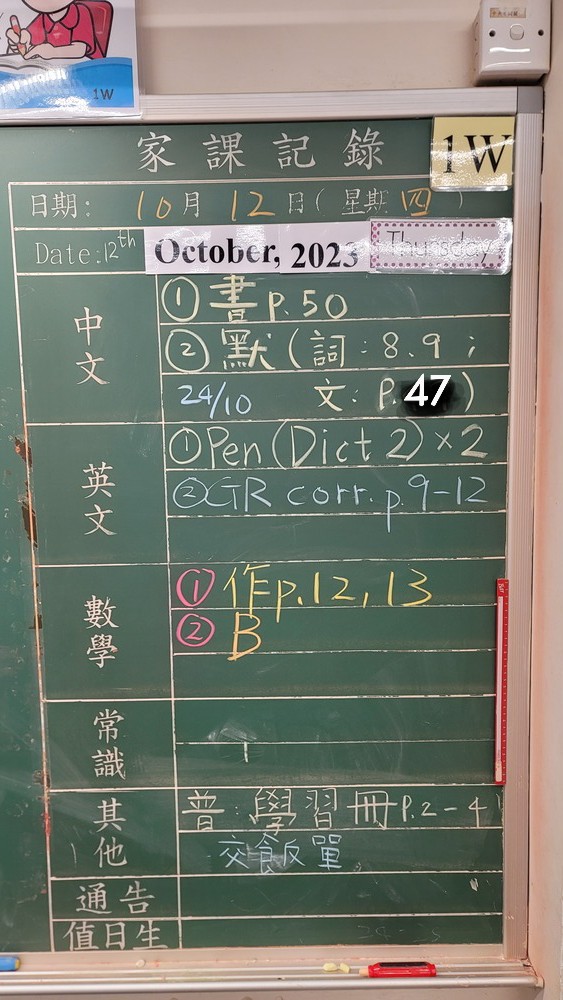 1W
家課記錄
1W
日期： 10月 12日（星期四）
Date:12th October, 2023 Thursday
中文
①書p.50
②默(詞：8.9；
24/10 文：p.47)
英文
①Pen(Dict 2)×2
②GR corr. p.9-12
數學
①作p.12,13
②B
常識
其他
普：學習冊P.2-4
交飯單
通告
值日生